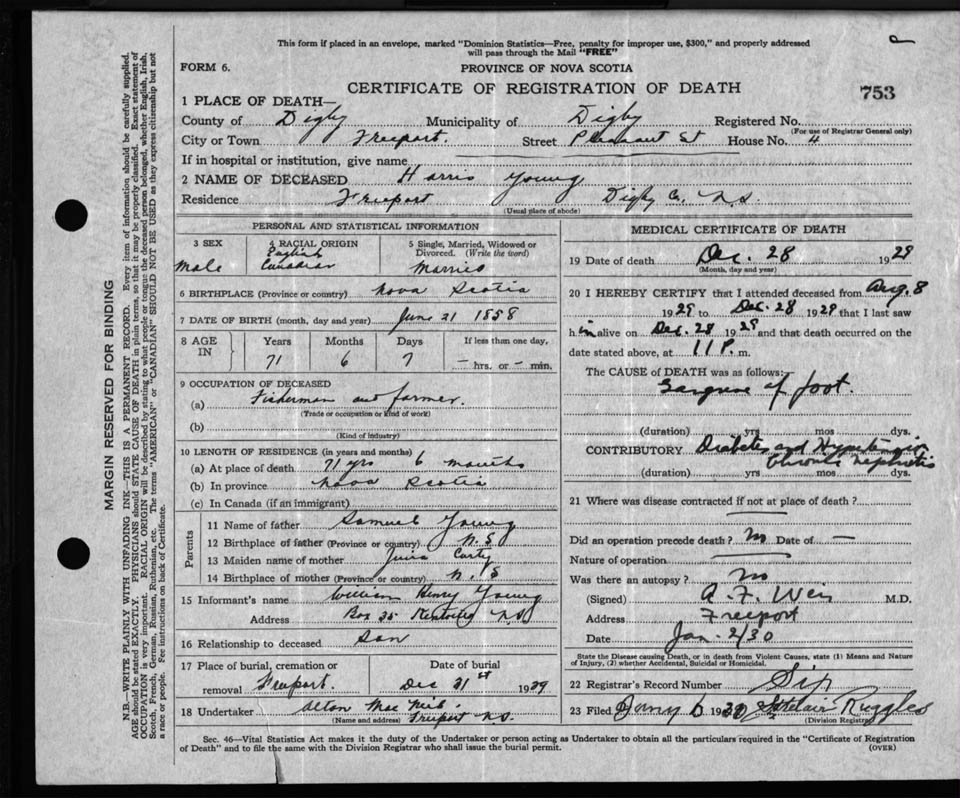 This form if placed in an envelope, marked "Dominion Statistics—Free, penalty for improper use, $300," and properly addressed
will pass through the Mail "FREE"
FORM 6.
PROVINCE OF NOVA SCOTIA
CERTIFICATE OF REGISTRATION OF DEATH
753
1 PLACE OF DEATH—
County of Digby Municipality of Digby Registered No.
(For use of Registrar General only)
City or Town Freeport. Street Pleasant St House No. 4
If in hospital or institution, give name
2 NAME OF DECEASED Harris Young
Residence Freeport Digby Co. N.S.
(Usual place of abode)
PERSONAL AND STATISTICAL INFORMATION
3 SEX
Male
4 RACIAL ORIGIN
English
Canadian
5 Single, Married, Widowed or
Divorced. (Write the word)
Married
6 BIRTHPLACE (Province or country) Nova Scotia
7 DATE OF BIRTH (month, day and year) June 21 1858
8 AGE IN
Years Months Days If less than one day,
71 6 7 — hrs. or — min.
9 OCCUPATION OF DECEASED
(a) Fisherman and farmer.
(Trade or occupation or kind of work)
(b)
(Kind of industry)
10 LENGTH OF RESIDENCE (in years and months)
(a) At place of death 71 yrs 6 months
(b) In province Nova Scotia
(c) In Canada (if an immigrant)
Parents
11 Name of father Samuel Young
12 Birthplace of father (Province or country) N.S
13 Maiden name of mother Carty
14 Birthplace of mother (Province or country) N.S
15 Informant's name William Henry Young
Address Box 35 NS
16 Relationship to deceased Son
17 Place of burial, cremation or Date of burial
removal Freeport. Dec 31st 1929
18 Undertaker Alton Mac Neil.
(Name and address) Freeport N.S.
MEDICAL CERTIFICATE OF DEATH
19 Date of death Dec. 28 1929
(Month, day and year)
20 I HEREBY CERTIFY that I attended deceased from Aug. 8
1929 to Dec. 28 1929 that I last saw
him alive on Dec. 28 1929 and that death occurred on the
date stated above, at 11 P. m.
The CAUSE of DEATH was as follows:
Gangrene of foot.
(duration) yrs mos dys.
CONTRIBUTORY Diabetes and Hypertension
Chronic Nephritis
(duration) yrs mos dys.
21 Where was disease contracted if not at place of death?
Did an operation precede death? No Date of —
Nature of operation
Was there an autopsy? No
(Signed) A. F. Weir M.D.
Address Freeport
Date Jan. 2/30
State the Disease causing Death, or in death from Violent Causes, state (1) Means and Nature
of Injury, (2) whether Accidental, Suicidal or Homicidal.
22 Registrar's Record Number Six
23 Filed 6 1930 Ruggles
(Division Registrar)
Sec. 46—Vital Statistics Act makes it the duty of the Undertaker or person acting as Undertaker to obtain all the particulars required in the "Certificate of Registration
of Death" and to file the same with the Division Registrar who shall issue the burial permit.
(OVER)
MARGIN RESERVED FOR BINDING
N.B.—WRITE PLAINLY WITH UNFADING INK—THIS IS A PERMANENT RECORD. Every item of information should be carefully supplied.
AGE should be stated EXACTLY. PHYSICIANS should STATE CAUSE OF DEATH in plain terms, so that it may be properly classified. Exact statement of
OCCUPATION is very important. RACIAL ORIGIN will be described by stating to what people or tongue the deceased person belonged, whether English, Irish,
Scotch, French, German, Russian, Ruthenian, etc. The terms "AMERICAN" or "CANADIAN" SHOULD NOT BE USED as they express citizenship but not
a race or people. Fee instructions on back of Certificate.